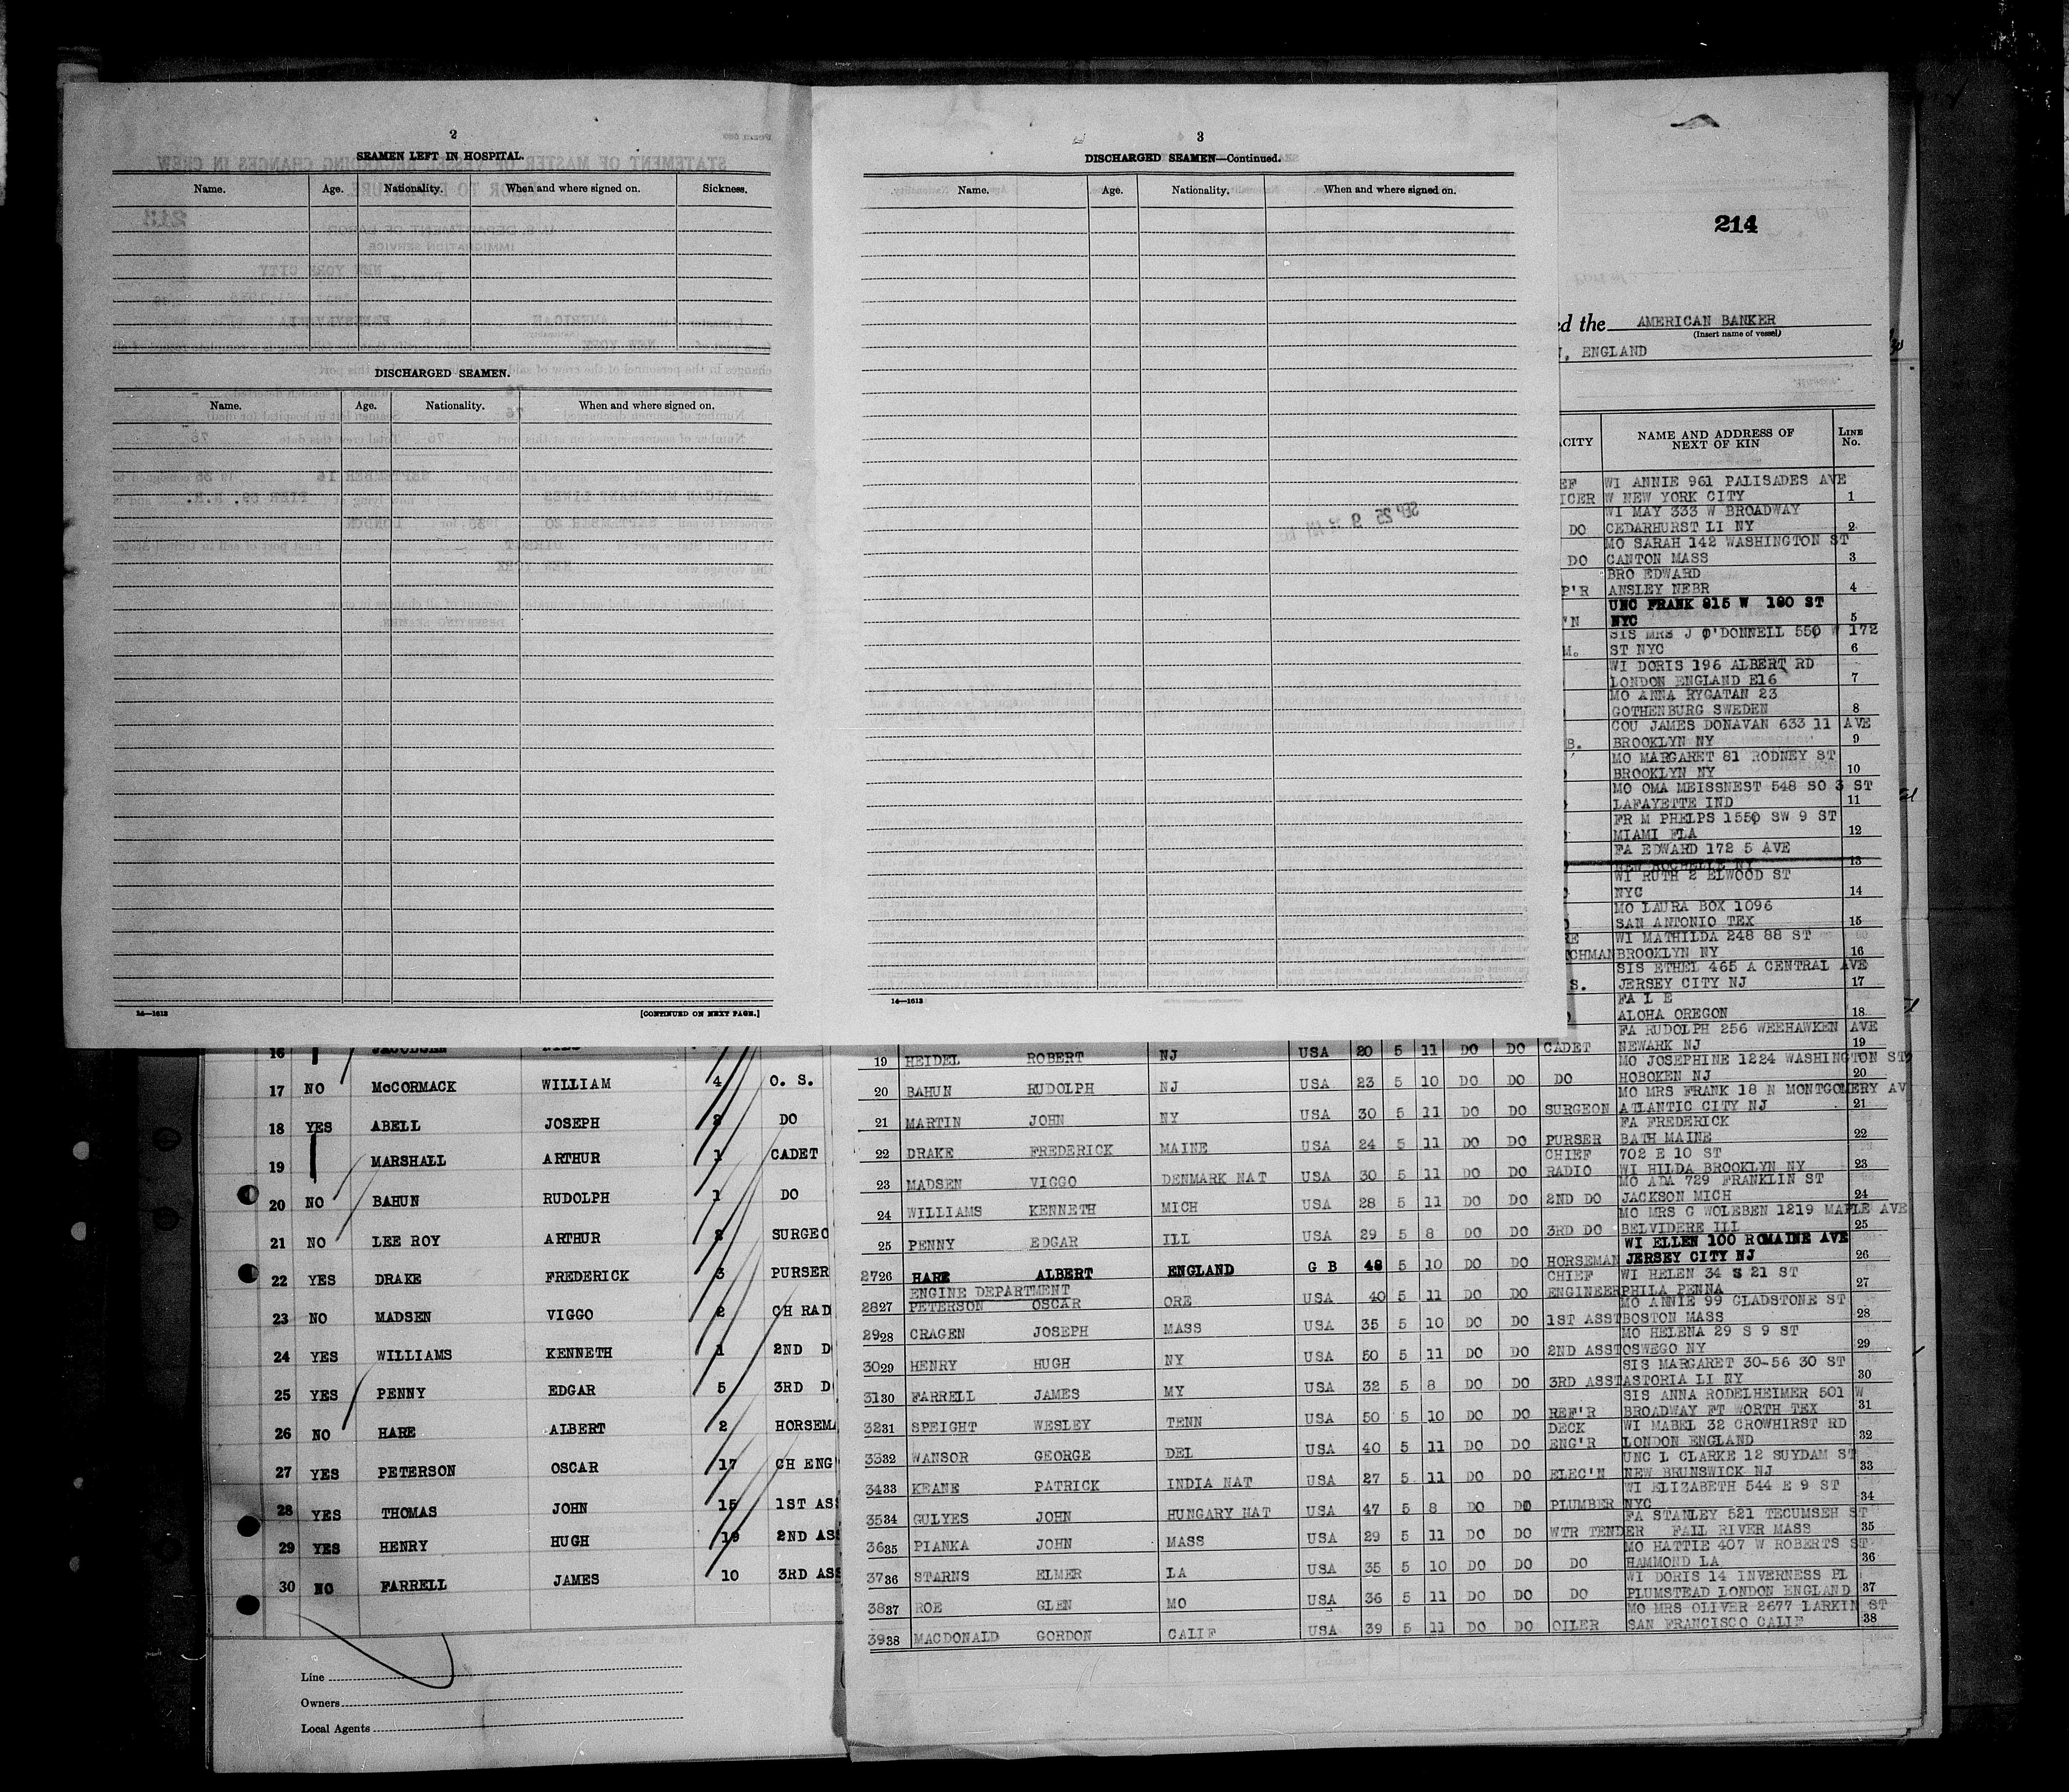 2
SEAMEN LEFT IN HOSPITAL.
Name. Age. Nationality. When and where signed on. Sickness.
DISCHARGED SEAMEN.
Name. Age. Nationality. When and where signed on.
14—1613 [CONTINUED ON NEXT PAGE.]
3
DISCHARGED SEAMEN—Continued.
Name. Age. Nationality. When and where signed on.
14—1613
214
ed the AMERICAN BANKER
(Insert name of vessel)
, ENGLAND
ACITY NAME AND ADDRESS OF NEXT OF KIN LINE No.
EF WI ANNIE 961 PALISADES AVE
ICER W NEW YORK CITY 1
WI MAY 333 W BROADWAY
DO CEDARHURST LI NY 2
MO SARAH 142 WASHINGTON ST
DO CANTON MASS 3
BRO EDWARD
P'R ANSLEY NEBR 4
UNC FRANK 815 W 180 ST
'N NYC 5
SIS MRS J O'DONNELL 550 W 172
M. ST NYC 6
WI DORIS 196 ALBERT RD
LONDON ENGLAND E16 7
MO ANNA RYGATAN 23
GOTHENBURG SWEDEN 8
COU JAMES DONAVAN 633 11 AVE
B. BROOKLYN NY 9
MO MARGARET 81 RODNEY ST
BROOKLYN NY 10
MO OMA MEISSNEST 548 SO 3 ST
LAFAYETTE IND 11
FR M PHELPS 1550 SW 9 ST
MIAMI FLA 12
FA EDWARD 172 5 AVE
NEW ROCHELLE NY 13
WI RUTH 2 ELWOOD ST
NYC 14
MO LAURA BOX 1096
SAN ANTONIO TEX 15
RE WI MATHILDA 248 88 ST
CHMAN BROOKLYN NY 16
SIS ETHEL 465 A CENTRAL AVE
S. JERSEY CITY NJ 17
FA L E
ALOHA OREGON 18
FA RUDOLPH 256 WEEHAWKEN AVE
19 HEIDEL ROBERT NJ USA 20 5 11 DO DO CADET NEWARK NJ 19
MO JOSEPHINE 1224 WASHINGTON ST
20 BAHUN RUDOLPH NJ USA 23 5 10 DO DO DO HOBOKEN NJ 20
MO MRS FRANK 18 N MONTGOMERY AV
21 MARTIN JOHN NY USA 30 5 11 DO DO SURGEON ATLANTIC CITY NJ 21
FA FREDERICK
22 DRAKE FREDERICK MAINE USA 24 5 11 DO DO PURSER BATH MAINE 22
CHIEF 702 E 10 ST
23 MADSEN VIGGO DENMARK NAT USA 30 5 11 DO DO RADIO WI HILDA BROOKLYN NY 23
MO ADA 729 FRANKLIN ST
24 WILLIAMS KENNETH MICH USA 28 5 11 DO DO 2ND DO JACKSON MICH 24
MO MRS G WOLEBEN 1219 MAPLE AVE
25 PENNY EDGAR ILL USA 29 5 8 DO DO 3RD DO BELVIDERE ILL 25
WI ELLEN 100 ROMAINE AVE
2726 HARE ALBERT ENGLAND G B 48 5 10 DO DO HORSEMAN JERSEY CITY NJ 26
ENGINE DEPARTMENT CHIEF WI HELEN 34 S 21 ST
2827 PETERSON OSCAR ORE USA 40 5 11 DO DO ENGINEER PHILA PENNA 27
MO ANNIE 99 GLADSTONE ST
2928 CRAGEN JOSEPH MASS USA 35 5 10 DO DO 1ST ASST BOSTON MASS 28
MO HELENA 29 S 9 ST
3029 HENRY HUGH NY USA 50 5 11 DO DO 2ND ASST OSWEGO NY 29
SIS MARGARET 30-56 30 ST
3130 FARRELL JAMES MY USA 32 5 8 DO DO 3RD ASST ASTORIA LI NY 30
SIS ANNA RODELHEIMER 501 W
3231 SPEIGHT WESLEY TENN USA 50 5 10 DO DO REF'R BROADWAY FT WORTH TEX 31
DECK WI MABEL 32 CROWHIRST RD
3332 WANSOR GEORGE DEL USA 40 5 11 DO DO ENG'R LONDON ENGLAND 32
UNC L CLARKE 12 SUYDAM ST
3433 KEANE PATRICK INDIA NAT USA 27 5 11 DO DO ELEC'N NEW BRUNSWICK NJ 33
WI ELIZABETH 544 E 9 ST
3534 GULYES JOHN HUNGARY NAT USA 47 5 8 DO DO PLUMBER NYC 34
FA STANLEY 521 TECUMSEH ST
3635 PIANKA JOHN MASS USA 29 5 11 DO DO WTR TENDER FALL RIVER MASS 35
MO HATTIE 407 W ROBERTS ST
3736 STARNS ELMER LA USA 35 5 10 DO DO DO HAMMOND LA 36
WI DORIS 14 INVERNESS PL
3837 ROE GLEN MO USA 36 5 11 DO DO DO PLUMSTEAD LONDON ENGLAND 37
MO MRS OLIVER 2677 LARKIN ST
3938 MACDONALD GORDON CALIF USA 39 5 11 DO DO OILER SAN FRANCISCO CALIF 38
16
17 NO McCORMACK WILLIAM 4 O. S.
18 YES ABELL JOSEPH DO
19 MARSHALL ARTHUR 1 CADET
20 NO BAHUN RUDOLPH 1 DO
21 NO LEE ROY ARTHUR SURGEO
22 YES DRAKE FREDERICK 3 PURSER
23 NO MADSEN VIGGO 2 CH RAD
24 YES WILLIAMS KENNETH 1 2ND D
25 YES PENNY EDGAR 5 3RD D
26 NO HARE ALBERT 2 HORSEMA
27 YES PETERSON OSCAR 17 CH ENG
28 YES THOMAS JOHN 15 1ST ASS
29 YES HENRY HUGH 19 2ND ASS
30 NO FARRELL JAMES 10 3RD ASS
Line
Owners
Local Agents